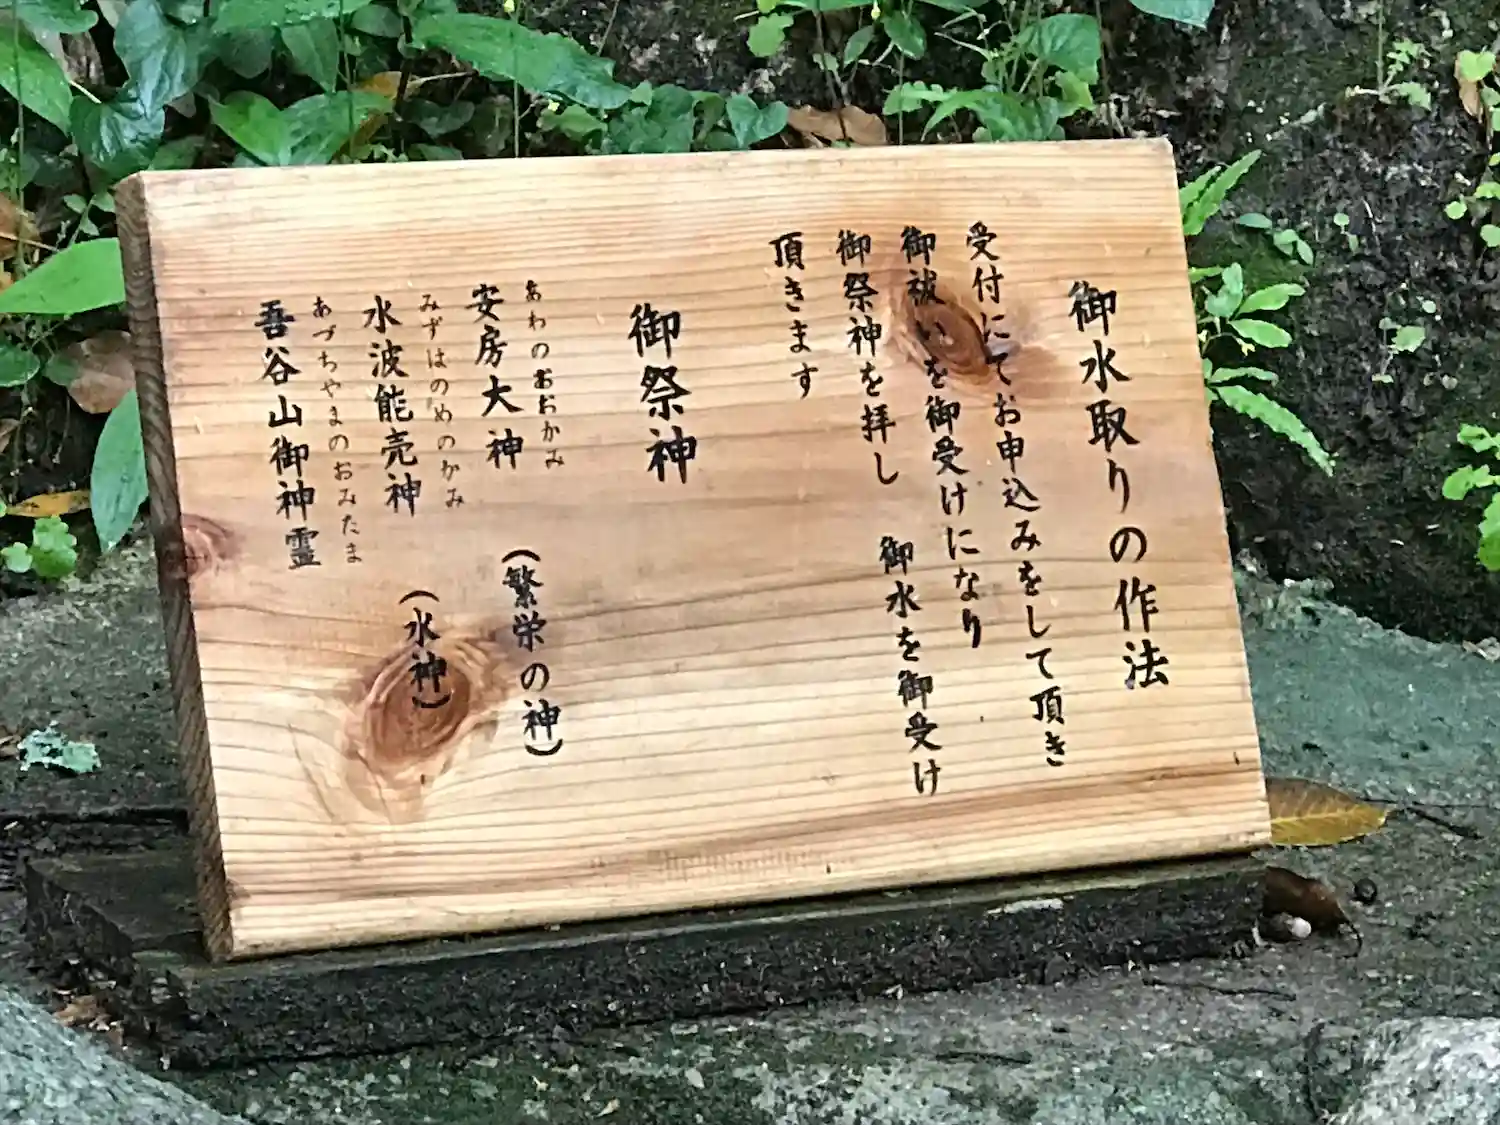 御水取りの作法
受付にてお申込みをして頂き
御祓いを御受けになり
御祭神を拝し 御水を御受け
頂きます
御祭神
あわのおおかみ
安房大神 (繁栄の神)
みずはのめのかみ
水波能売神 (水神)
あづちやまのおみたま
吾谷山御神霊